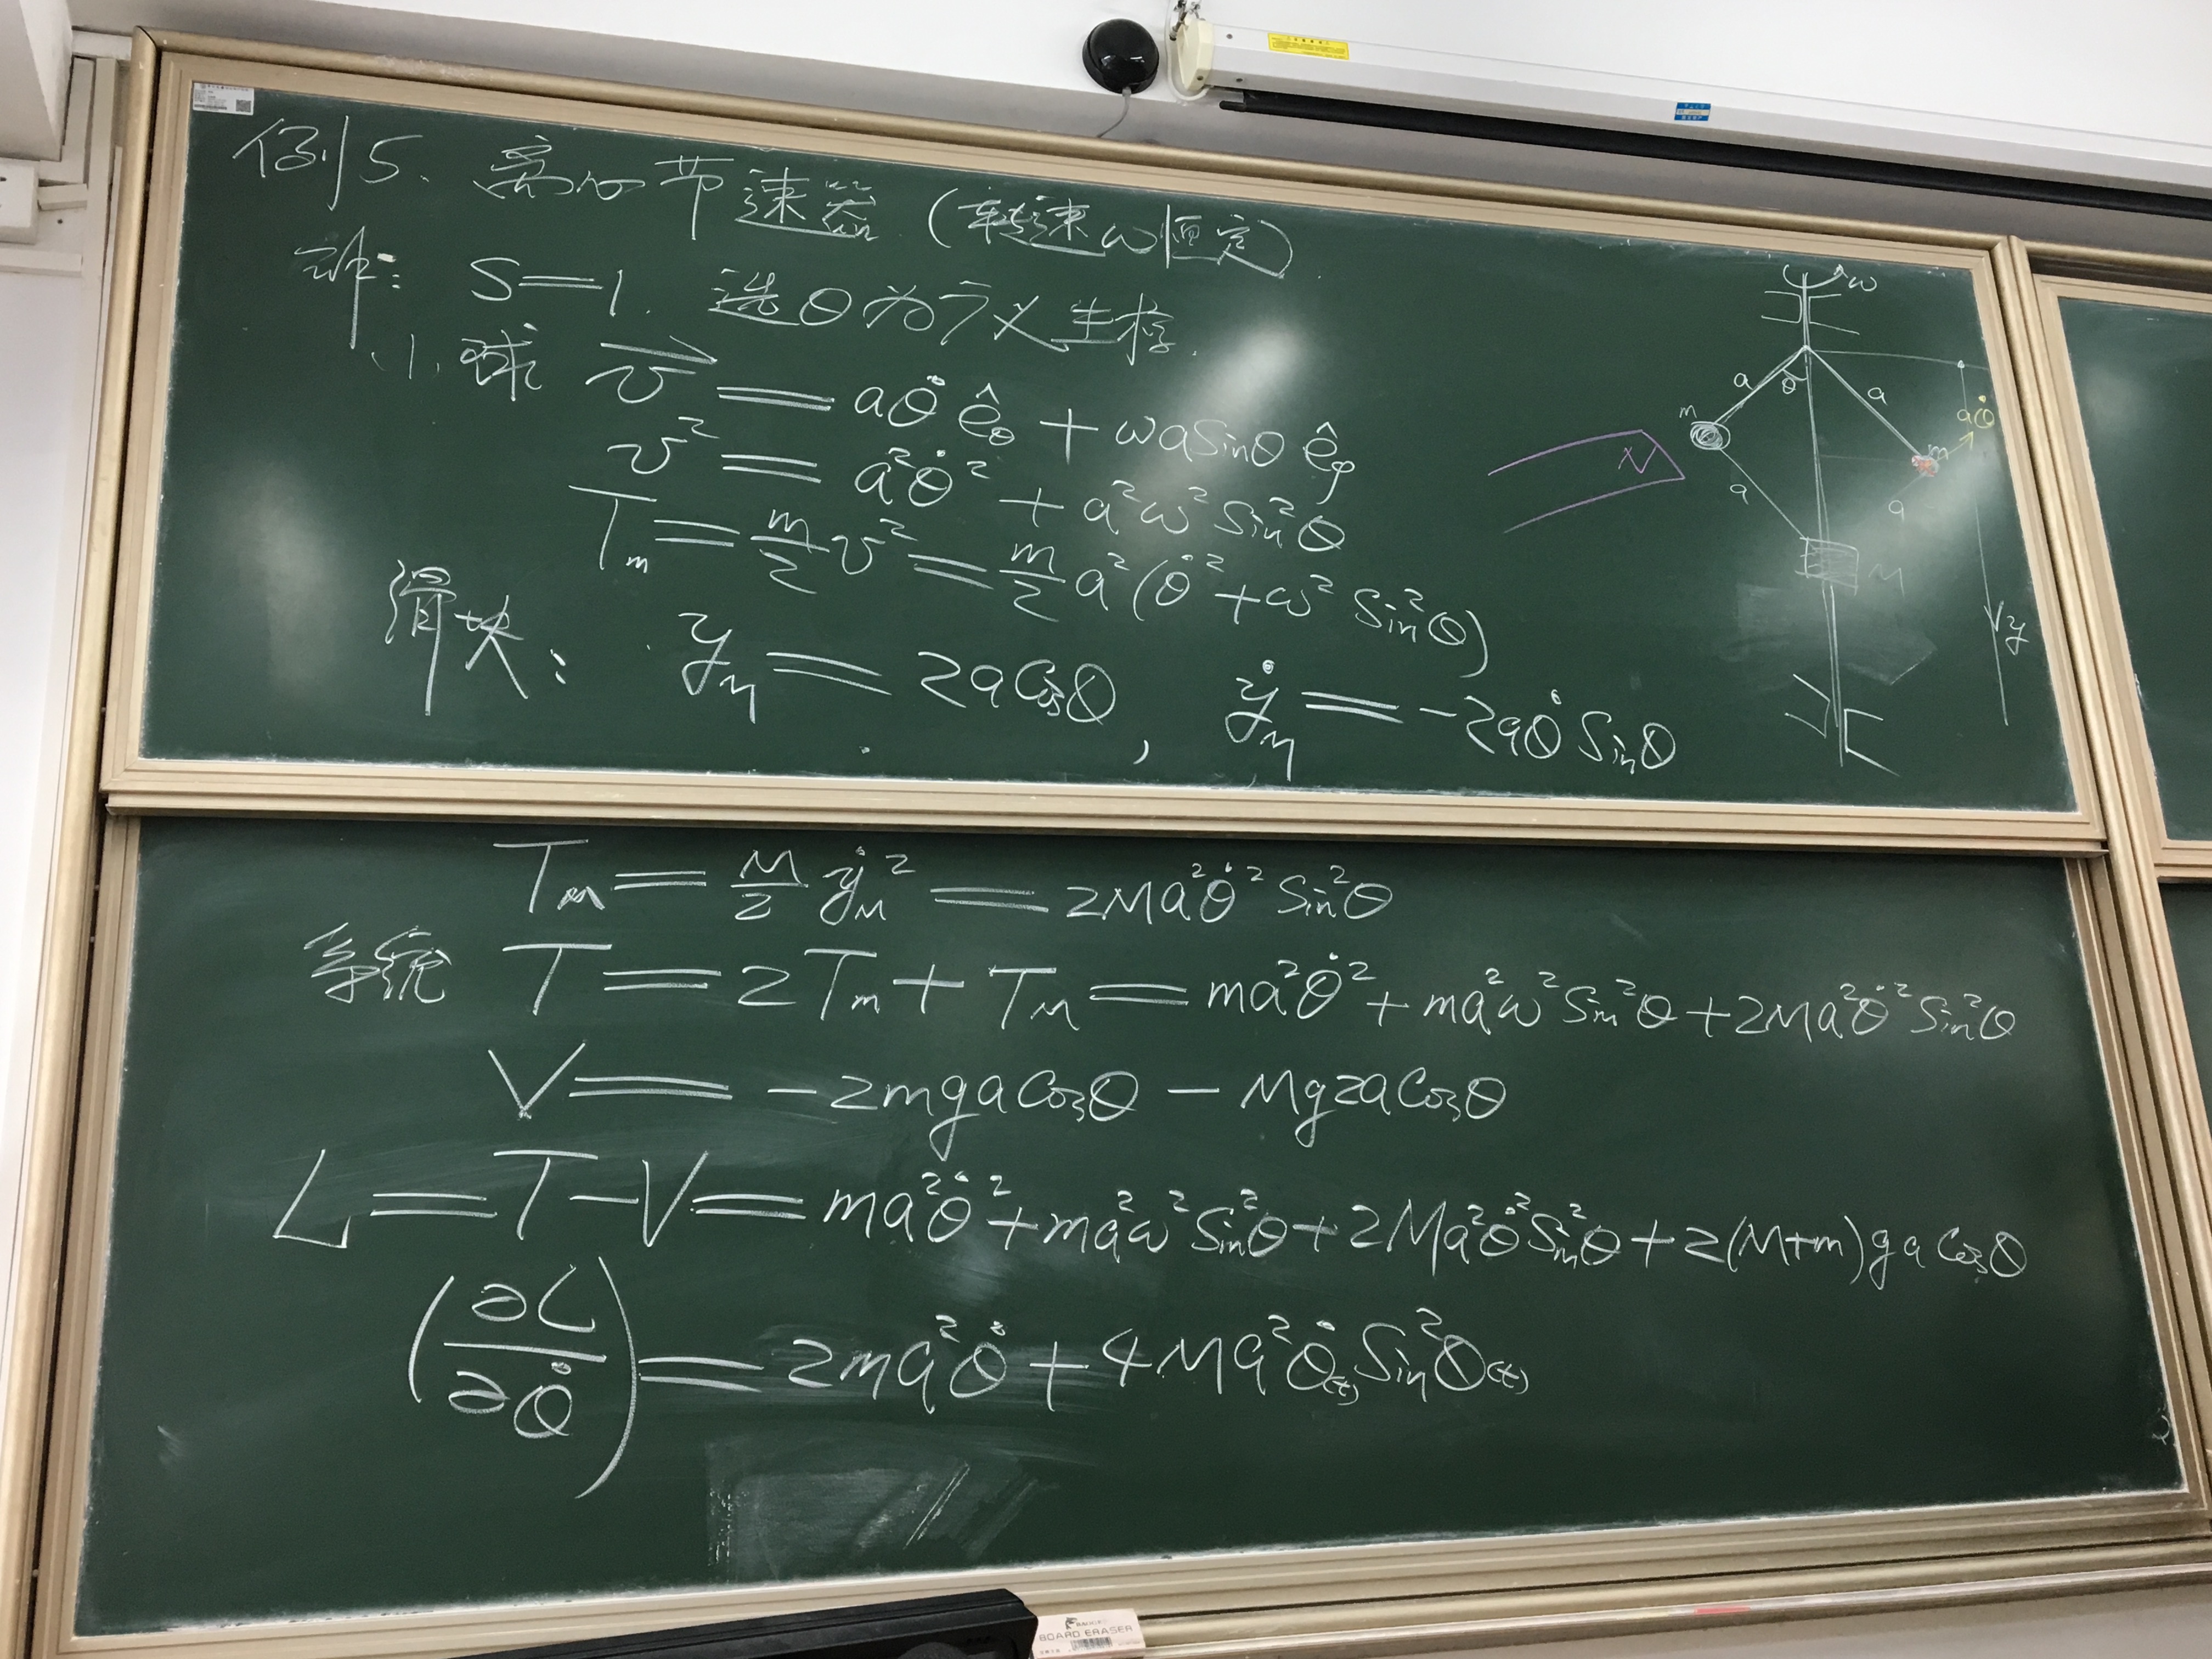 例5. 离心节速器 (转速ω恒定)
解: S=1. 选θ为广义坐标.
小球 v⃗ = aθ̇ ê_θ + ωa Sinθ ê_φ
v² = a²θ̇² + a²ω² Sin²θ
T_m = m/2 v² = m/2 a²(θ̇² + ω² Sin²θ)
滑块: y_M = 2a Cosθ , ẏ_M = -2aθ̇ Sinθ
T_M = M/2 ẏ_M² = 2Ma²θ̇² Sin²θ
系统 T = 2T_m + T_M = ma²θ̇² + ma²ω² Sin²θ + 2Ma²θ̇² Sin²θ
V = -2mga Cosθ - Mg2a Cosθ
L = T-V = ma²θ̇² + ma²ω² Sin²θ + 2Ma²θ̇² Sin²θ + 2(M+m)ga Cosθ
(∂L/∂θ̇) = 2ma²θ̇ + 4Ma²θ̇(t) Sin²θ(t)
ω
a
θ
a
aθ̇
m
m
N
a
a
M
y
BOARD ERASER